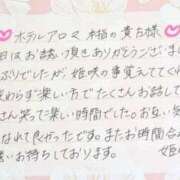 ホテルアロマ 本指の貴方様
日はお誘い頂きありがとうございま
ぶりでしたが、姫咲の事覚えててくれ
変わらず楽しい方でたくさんお話して
さん笑って楽しい時間でした。お互い気
なれて良かったです。またお時間合
思いお待ちしております。
姫